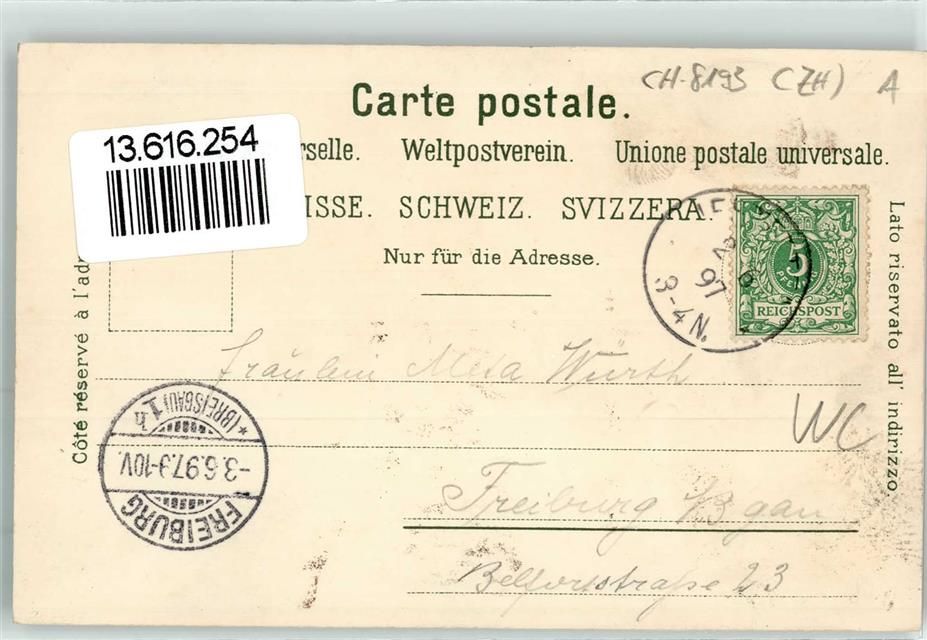 CH-8193 (ZH) A
Carte postale.
13.616.254
rselle. Weltpostverein. Unione postale universale.
ISSE. SCHWEIZ. SVIZZERA.
Nur für die Adresse.
Côté réservé à l'adr
Lato riservato all' indirizzo.
97
3-4 N.
5
PFENNIG
REICHSPOST
Fräulein Meta Würth
WC
Freiburg i/Bgau
Belfortstraße 23
FREIBURG
-3.6.97.9-10V.
*(BREISGAU)1h